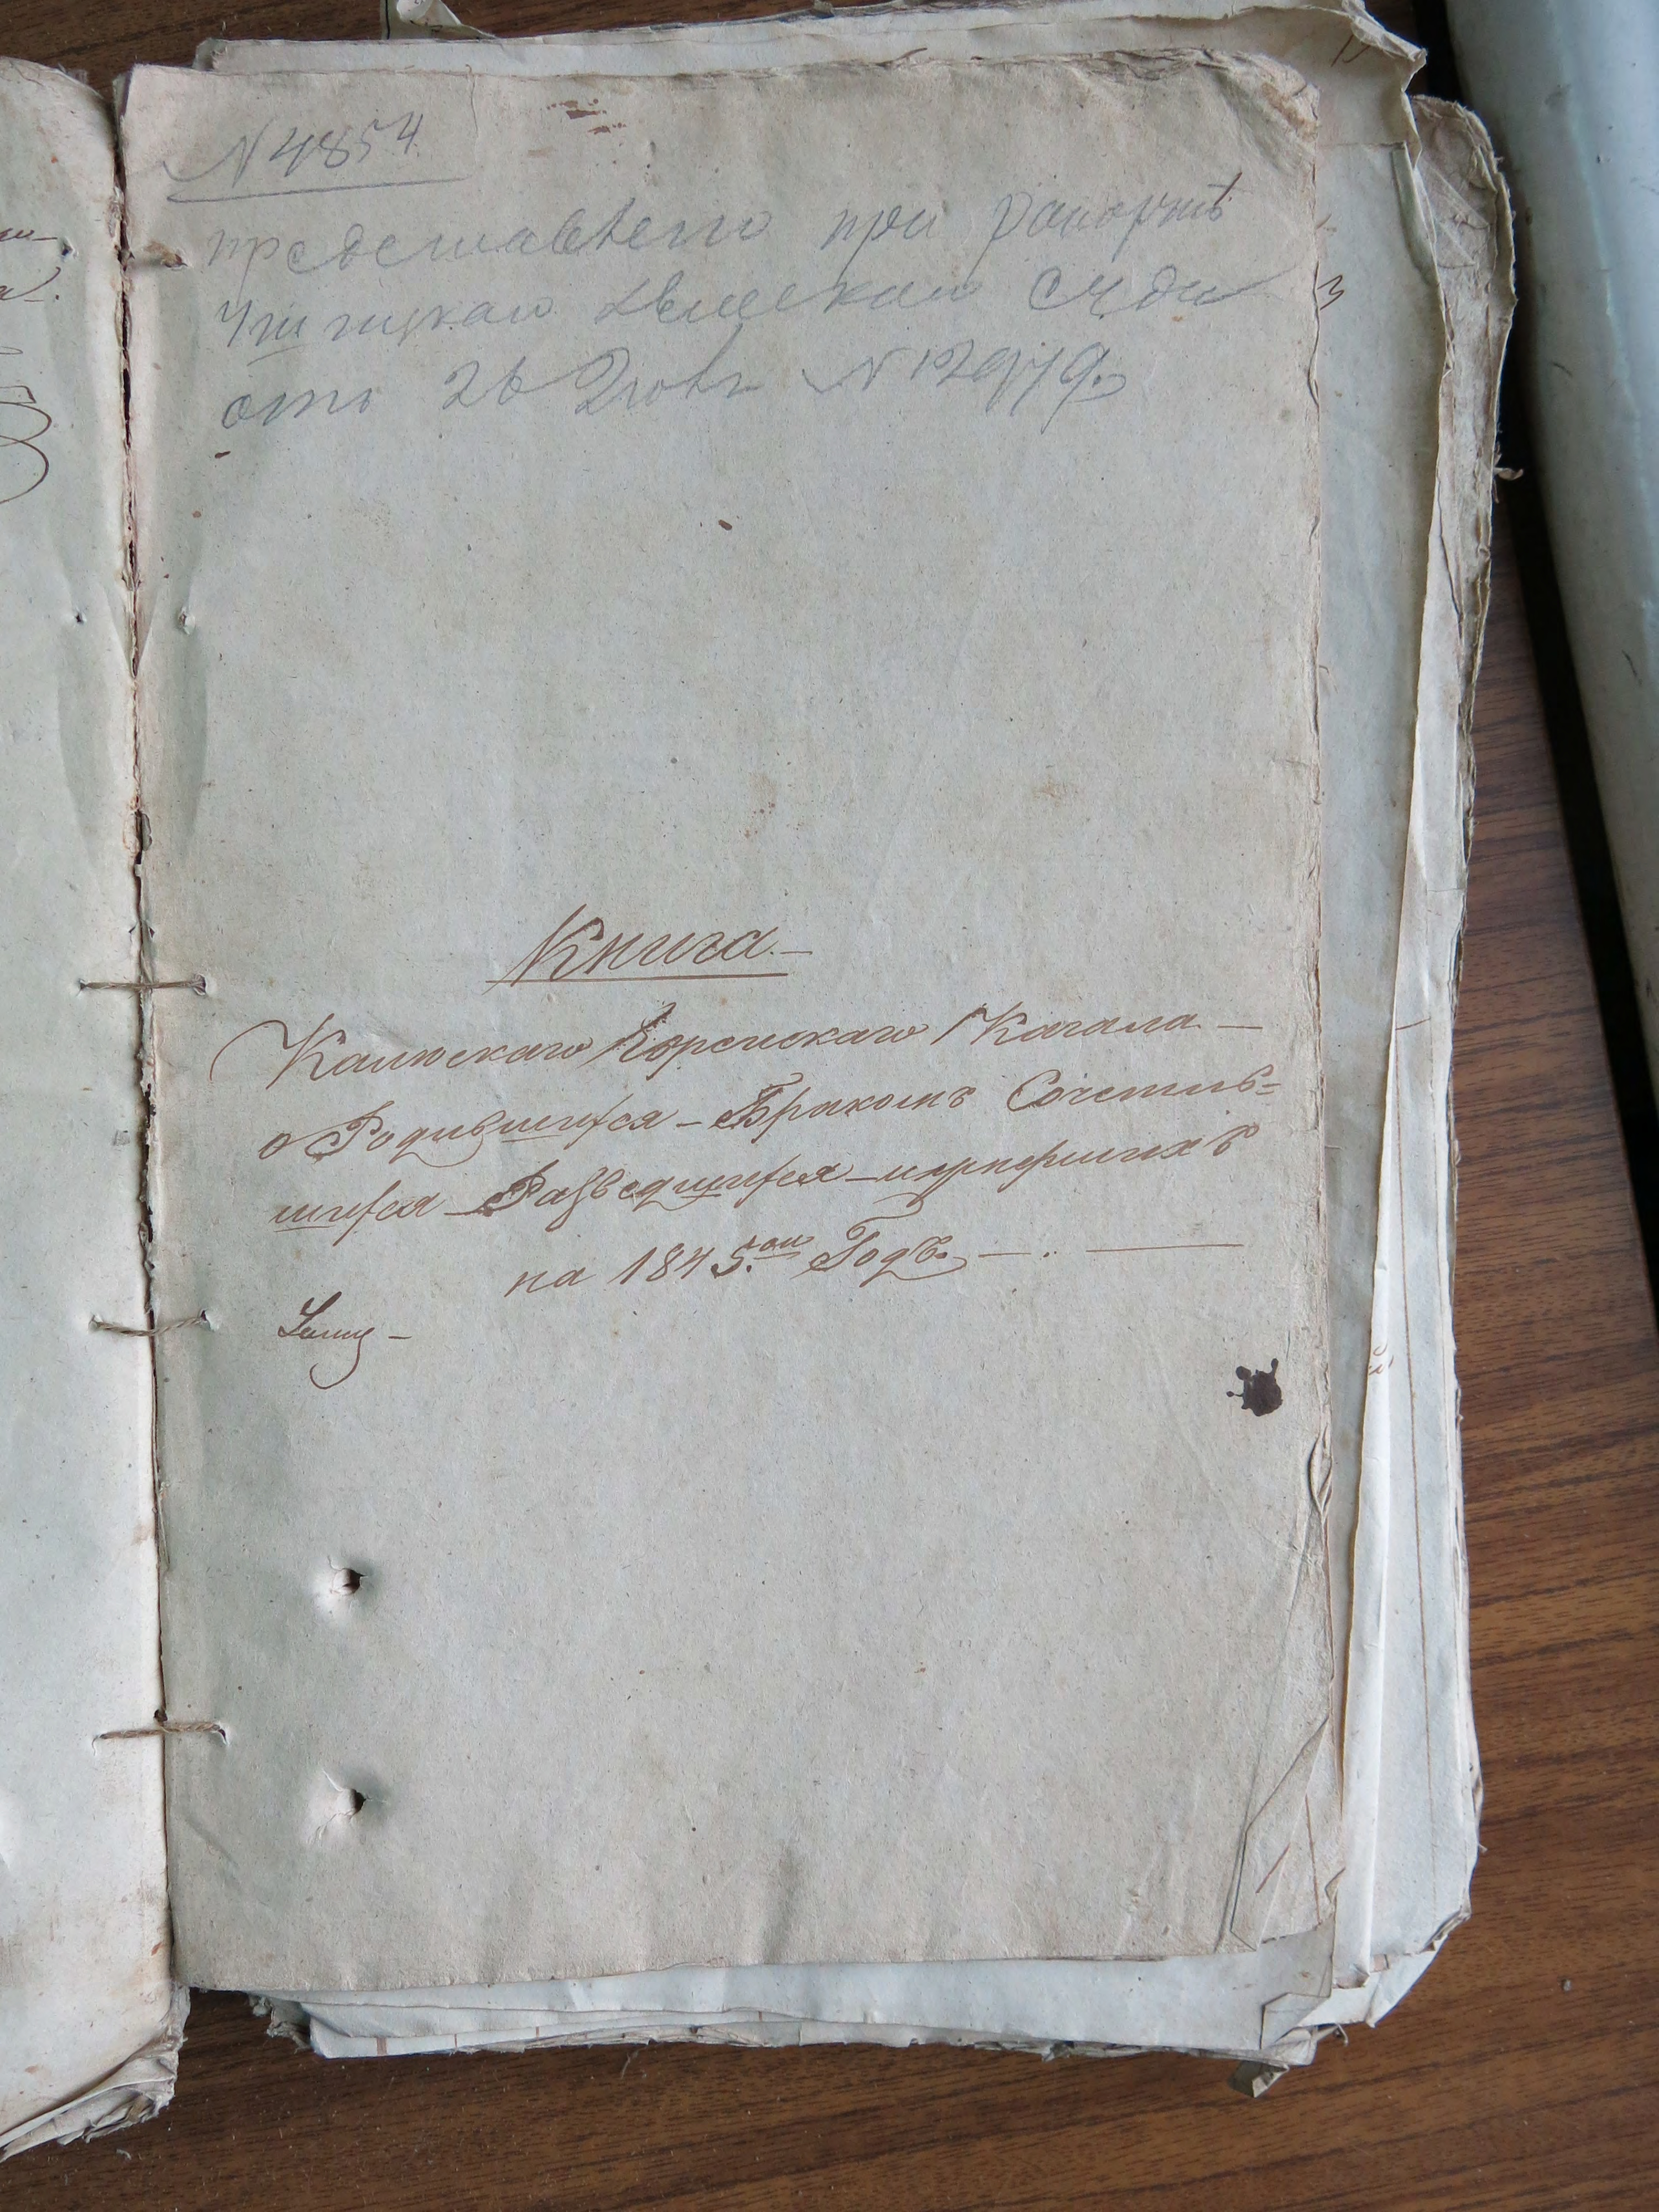 N 4854
представлено при рапортѣ
Ушицкаго Земскаго Суда
отъ 26 N 12979.
Книга.—
Калюскаго Еврейскаго Кагала —
о Родившихся — Бракомъ Сочетив=
шихся — Разведшихся — и умершихъ
на 1845.ой Годъ. —